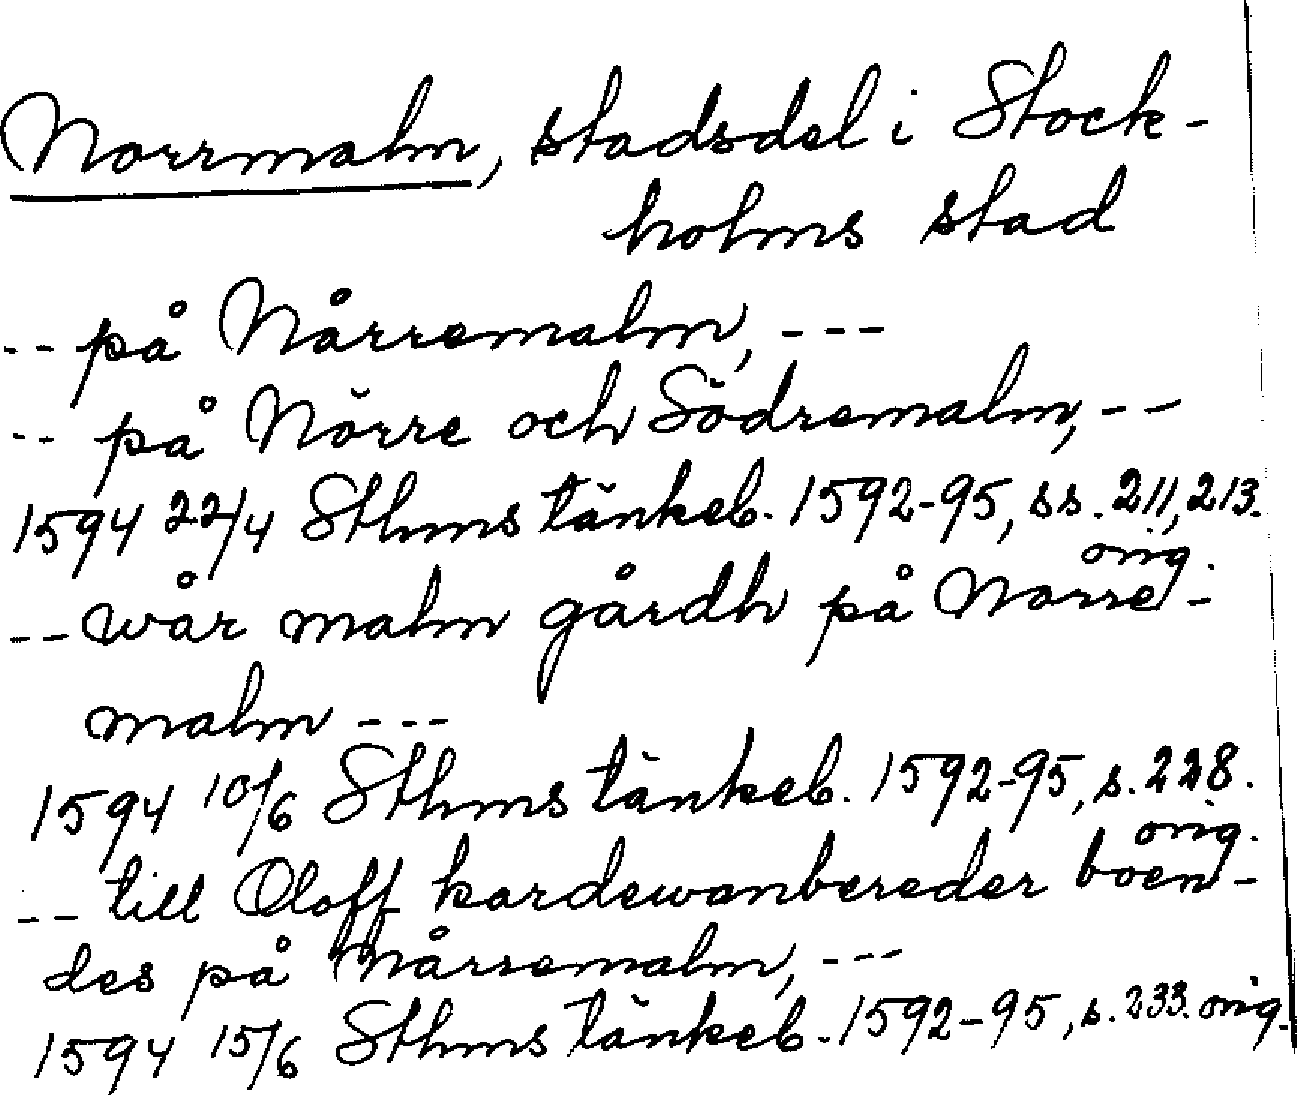 Norrmalm, stadsdel i Stock-
holms stad
-- på Nårremalm, ---
-- på Nörre och Södremalm, --
1594 22/4 Sthms tänkeb. 1592-95, ss. 211, 213.
orig.
-- wår malm gårdh på Norre-
malm ---
1594 10/6 Sthms tänkeb. 1592-95, s. 228.
orig.
-- till Oloff kardewanbereder boen-
des på Nårremalm, ---
1594 15/6 Sthms tänkeb. 1592-95, s. 233. orig.